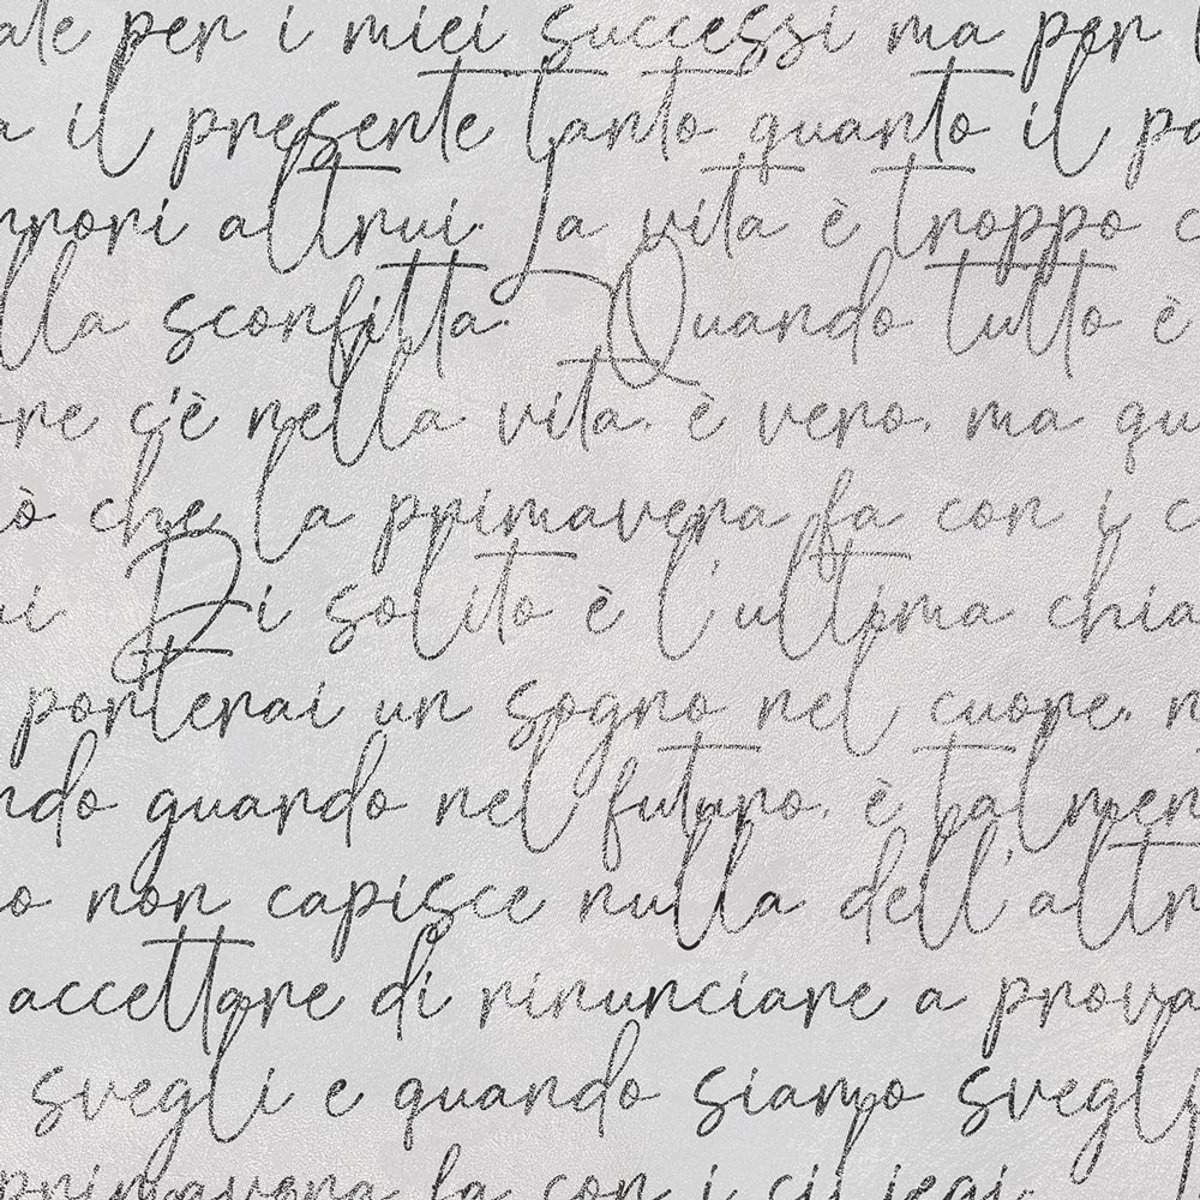 ale per i miei successi ma per
a il presente tanto quanto il pa
rrori altrui. La vita è troppo c
lla sconfitta. Quando tutto è
ore c'è nella vita, è vero, ma qu
iò che la primavera fa con i c
ui Di solito è l'ultima chia
porterai un sogno nel cuore, n
ndo guardo nel futuro, è talmen
o non capisce nulla dell'altr
accettare di rinunciare a prova
svegli e quando siamo svegl
primavera fa con i ciliegi.